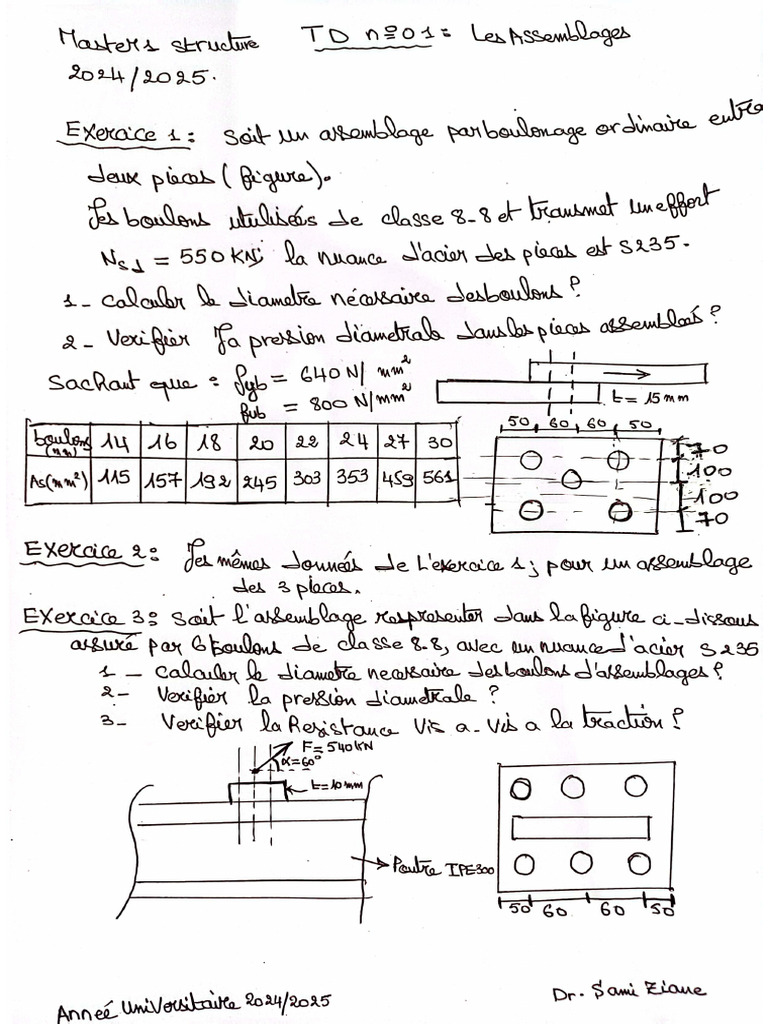 Masters structure TD n=01: Les Assemblages
2024/2025.
Exercice 1: Soit un assemblage par boulonage ordinaire entre
deux pieces (figure).
Les boulons utilisées de classe 8-8 et transmet un effort
Nsd = 550 KN; la nuance d'acier des pieces est S235.
1- Calculer le diametre nécessaire des boulons?
2- Verifier La pression diametrale dans les pieces assembleés?
Sachant que: fyb = 640 N/mm²
fub = 800 N/mm²
t = 15 mm
boulons (mm) 14 16 18 20 22 24 27 30
As(mm²) 115 157 192 245 303 353 459 561
50 60 60 50
70
100
100
70
Exercice 2: Les mêmes donneés de L'exercice 1; pour un assemblage
des 3 pieces.
Exercice 3: Soit l'assemblage respresenter dans la figure ci-dissous
assuré par 6 boulons de classe 8.8, avec un nuance d'acier S235
1- Calculer le diametre necessaire des boulons d'assemblages?
2- Verifier la pression diametrale?
3- Verifier la Resistance vis a-vis a la traction?
F=540KN
α=60°
t=10mm
Poutre IPE300
50 60 60 50
Anneé Universitaire 2024/2025
Dr. Sami Ziane